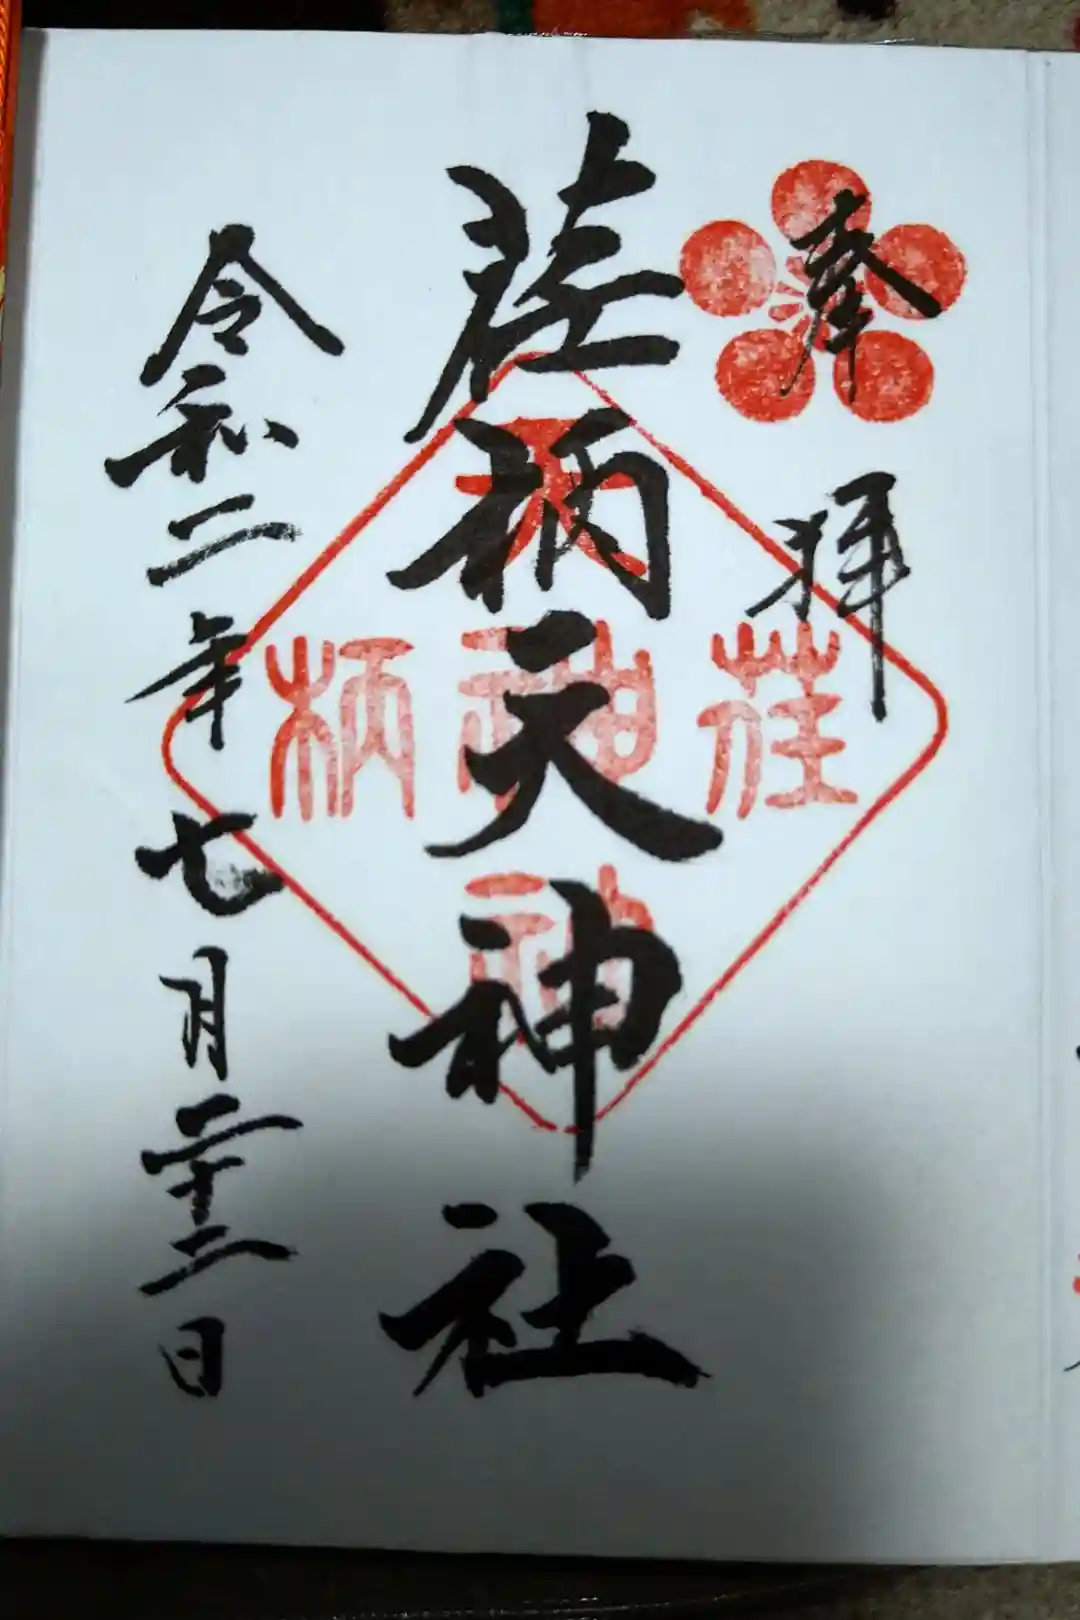 奉拝
荏柄天神社
令和二年七月二十二日
荏柄天神社